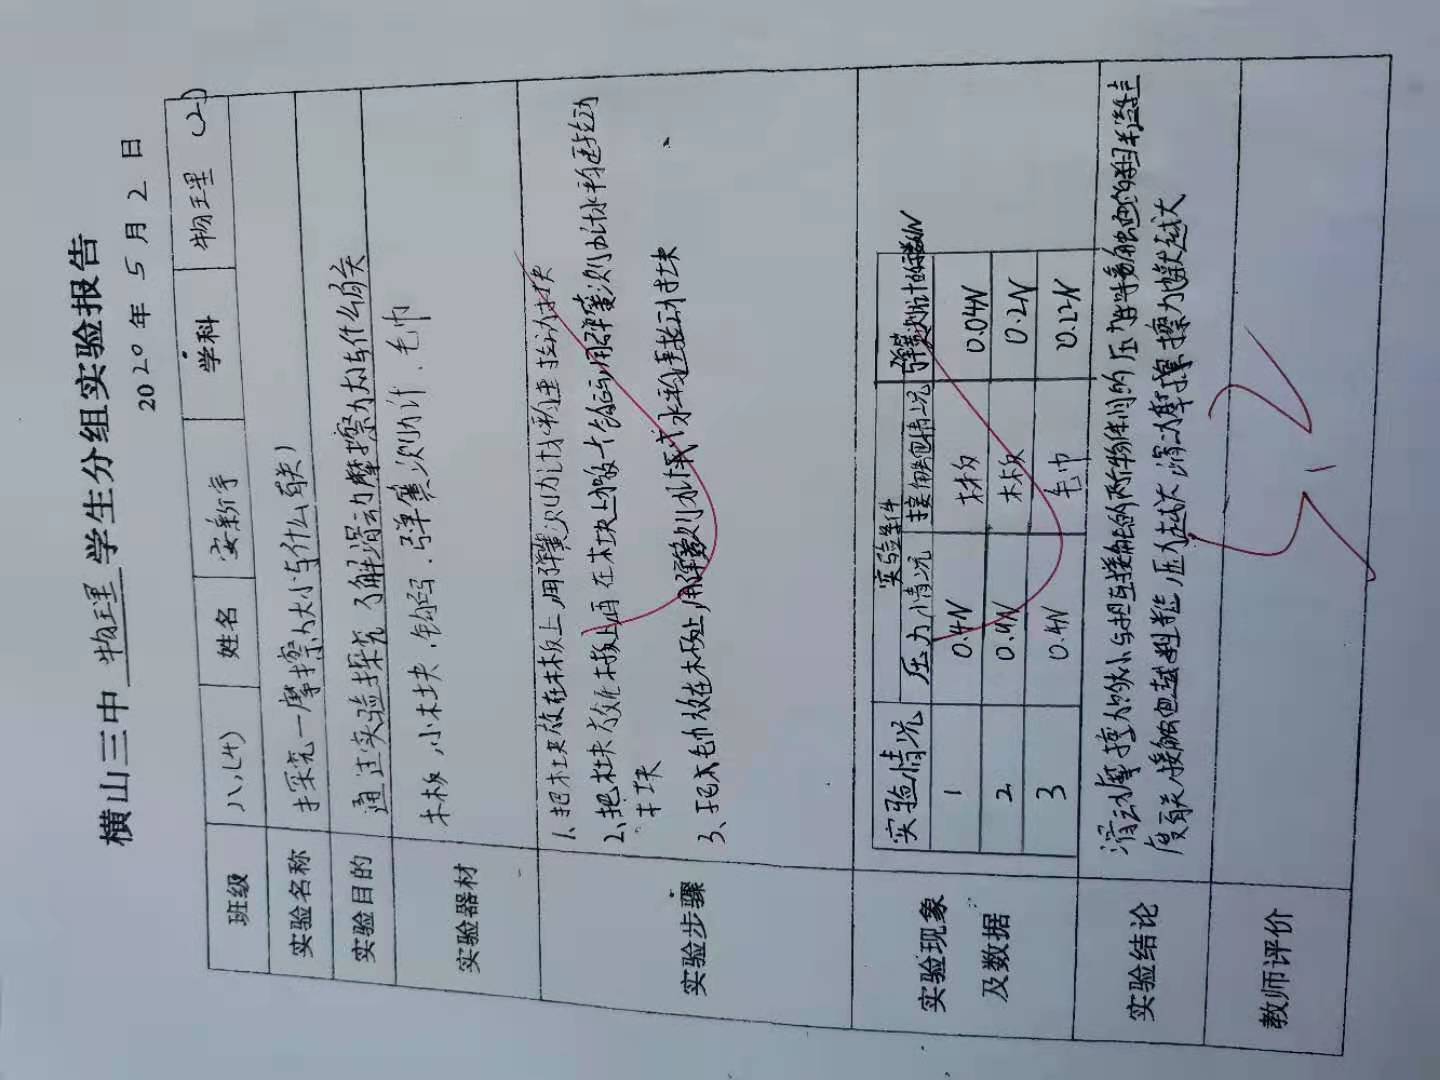 横山三中 物理 学生分组实验报告
2020年 5 月 2 日
班级 八(4) 姓名 安新宇 学科 物理 (2)
实验名称 探究一摩擦力大小与什么有关
实验目的 通过实验探究了解滑动摩擦力与什么有关
实验器材 木板,小木块,钩码,弹簧测力计,毛巾
实验步骤
1、把木块放在木板上,用弹簧测力计水平匀速拉动木块
2、把木块放在木板上再在木块上放一个 用弹簧测力计水平匀速拉动
木块
3、把 毛巾放在木板上,用弹簧测力计 水平匀速拉动木块
实验现象
及数据
实验情况 实验条件 弹簧测力计的示数/N
压力情况 接触面情况
1 0.4N 木板 0.04N
2 木板 0.2N
3 0.4N 毛巾 0.22N
实验结论
滑动摩擦力的大小与相互接触的两物体间的压力
度有关,接触面越粗糙,压力越大,滑动摩擦力就越大
教师评价